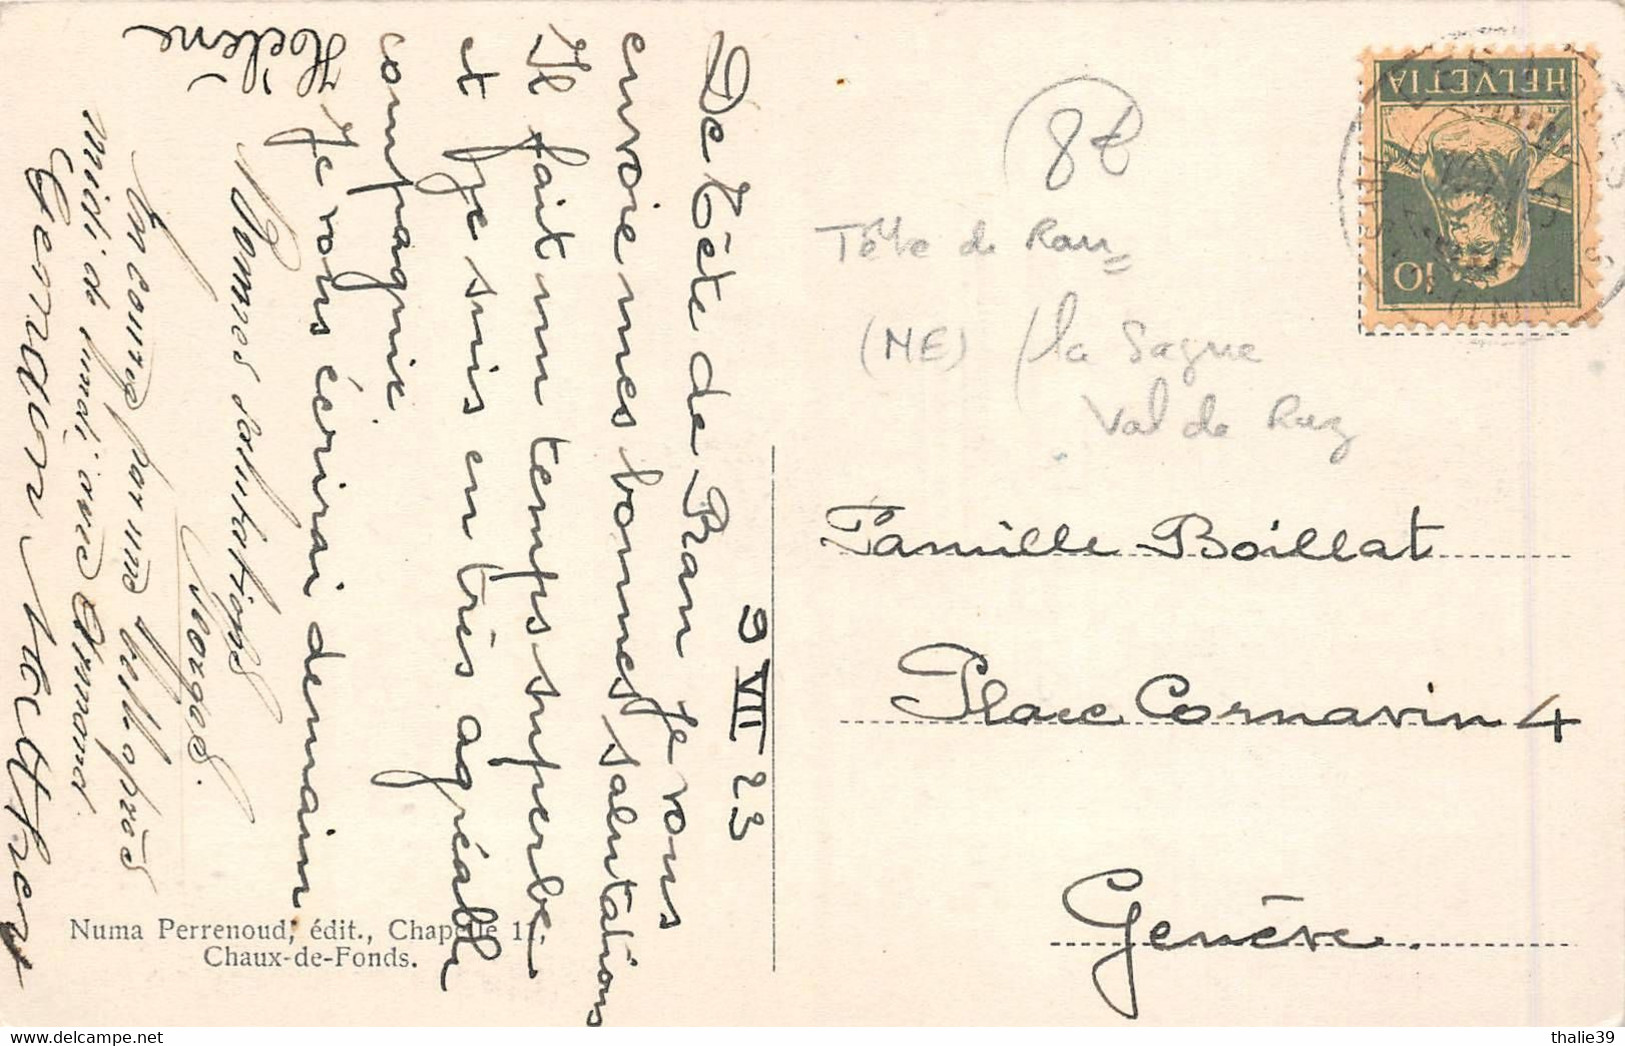 9 VII 23
De Tête de Ran Je vous
envoie mes bonnes salutations
Il fait un temps superbe
et Je suis en très agréable
compagnie
Je vous écrirai demain
Hélène
Bonnes salutations
Georges.
En course par une belle après
midi de lundi avec Armand
Germain
Numa Perrenoud, édit., Chapelle 11,
Chaux-de-Fonds.
8t
Tête de Ran
(NE) / la Sagne
Val de Ruz
HELVETIA
10
Famille Boillat
Place Cornavin 4
Genève.
thalie39